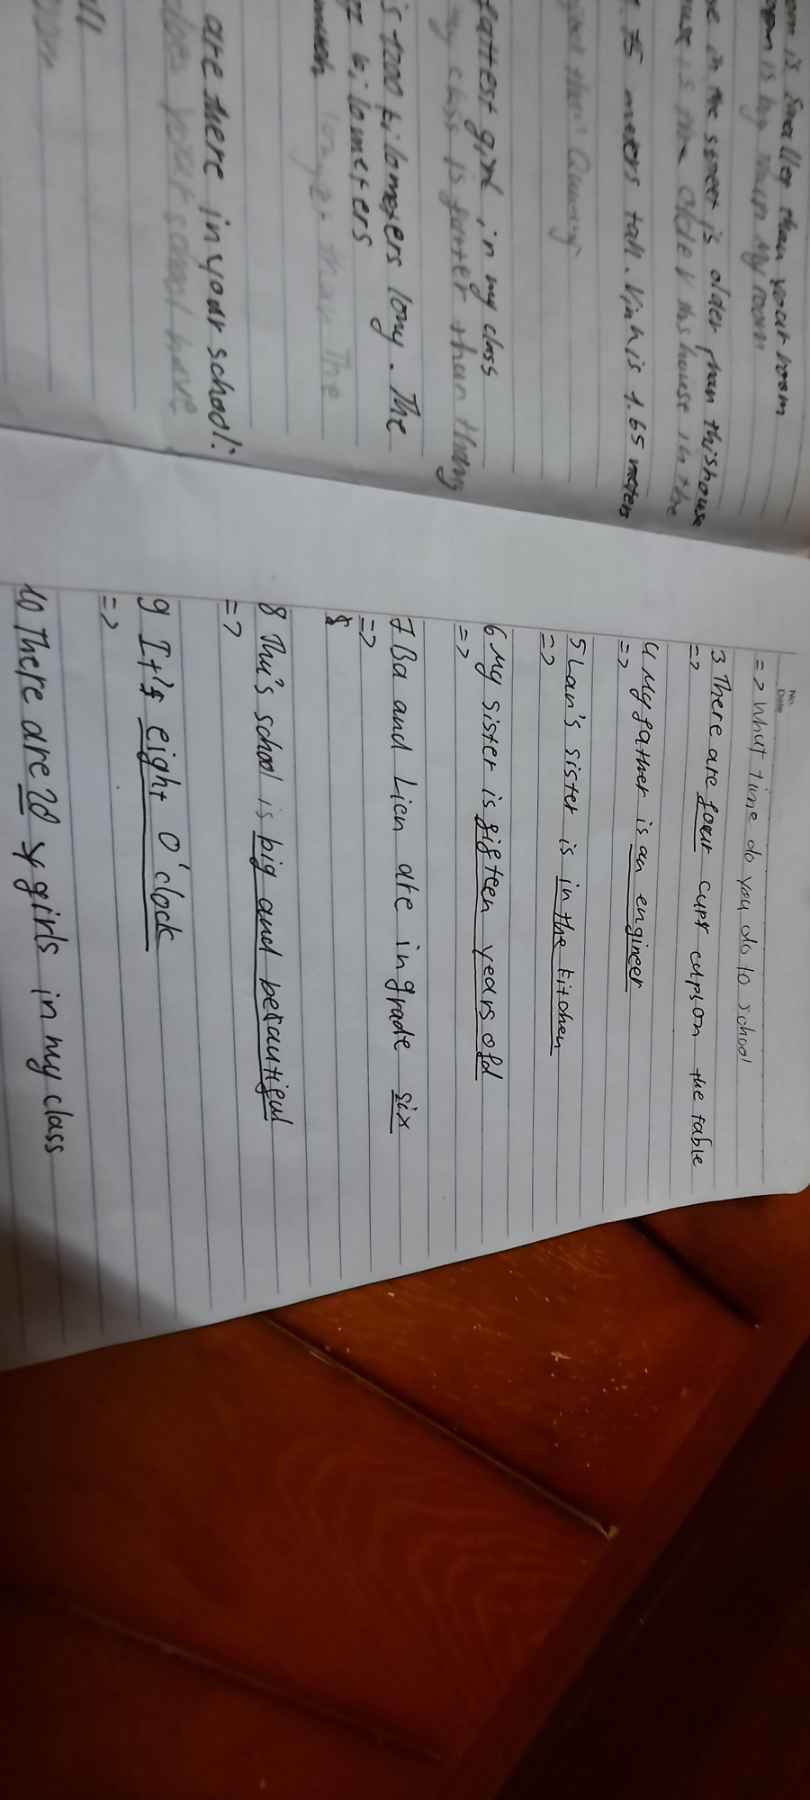 is smaller than your room
is big than My room
in the street is older than this house
is the older this house in the
75 meters tall. Vinh is 1.65 meters
fattest girl in my class
my class is fatter than thang
1200 kilometers long. The
kilometers
longer than the
are there in your school:
does your school have
all
room
No.
Date
=> What time do you do to school
3 There are four cups cups on the table
=>
4 My father is an engineer
=>
5 Lan's sister is in the kitchen
=>
6 My sister is fifteen years old
=>
7 Ba and Lien are in grade six
=>
8
8 Thi's school is big and beautiful
=>
9 It's eight o'clock
=>
10 There are 20 girls in my class